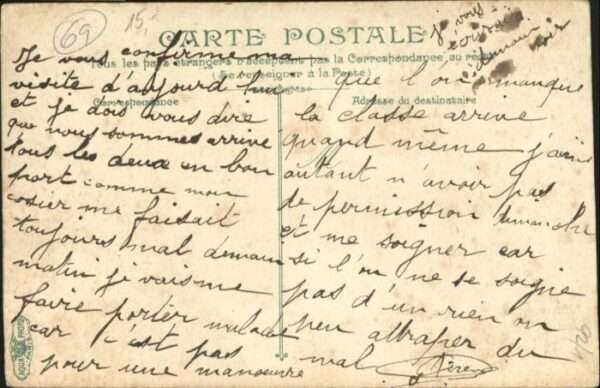 69
15,-
CARTE POSTALE
Tous les pays étrangers n'acceptent pas la Correspondance au
(Se renseigner à la Poste)
Correspondance
Adresse du destinataire
Je vous confirme ma
visite d'aujourd'hui
et je dois vous dire
que nous sommes arrivé
tous les deux en bon
port comme mon
cosier me faisait
toujours mal demain
matin je vais me
faire porter malade
car c'est pas
pour une manoeuvre
que l'on manque
la classe arrive
quand même j'aime
autant n'avoir pas
de permission dimanche
et me soigner car
si l'on ne se soigne
pas d'un rien on
peu attraper du
mal
je vous
écrirai
demain
soir